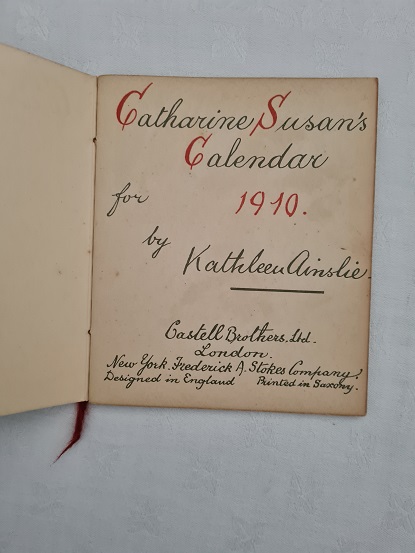 Catharine Susan's
Calendar
for 1910.
by
Kathleen Ainslie.
Castell Brothers. Ltd.
London.
New York. Frederick A. Stokes Company.
Designed in England Printed in Saxony.